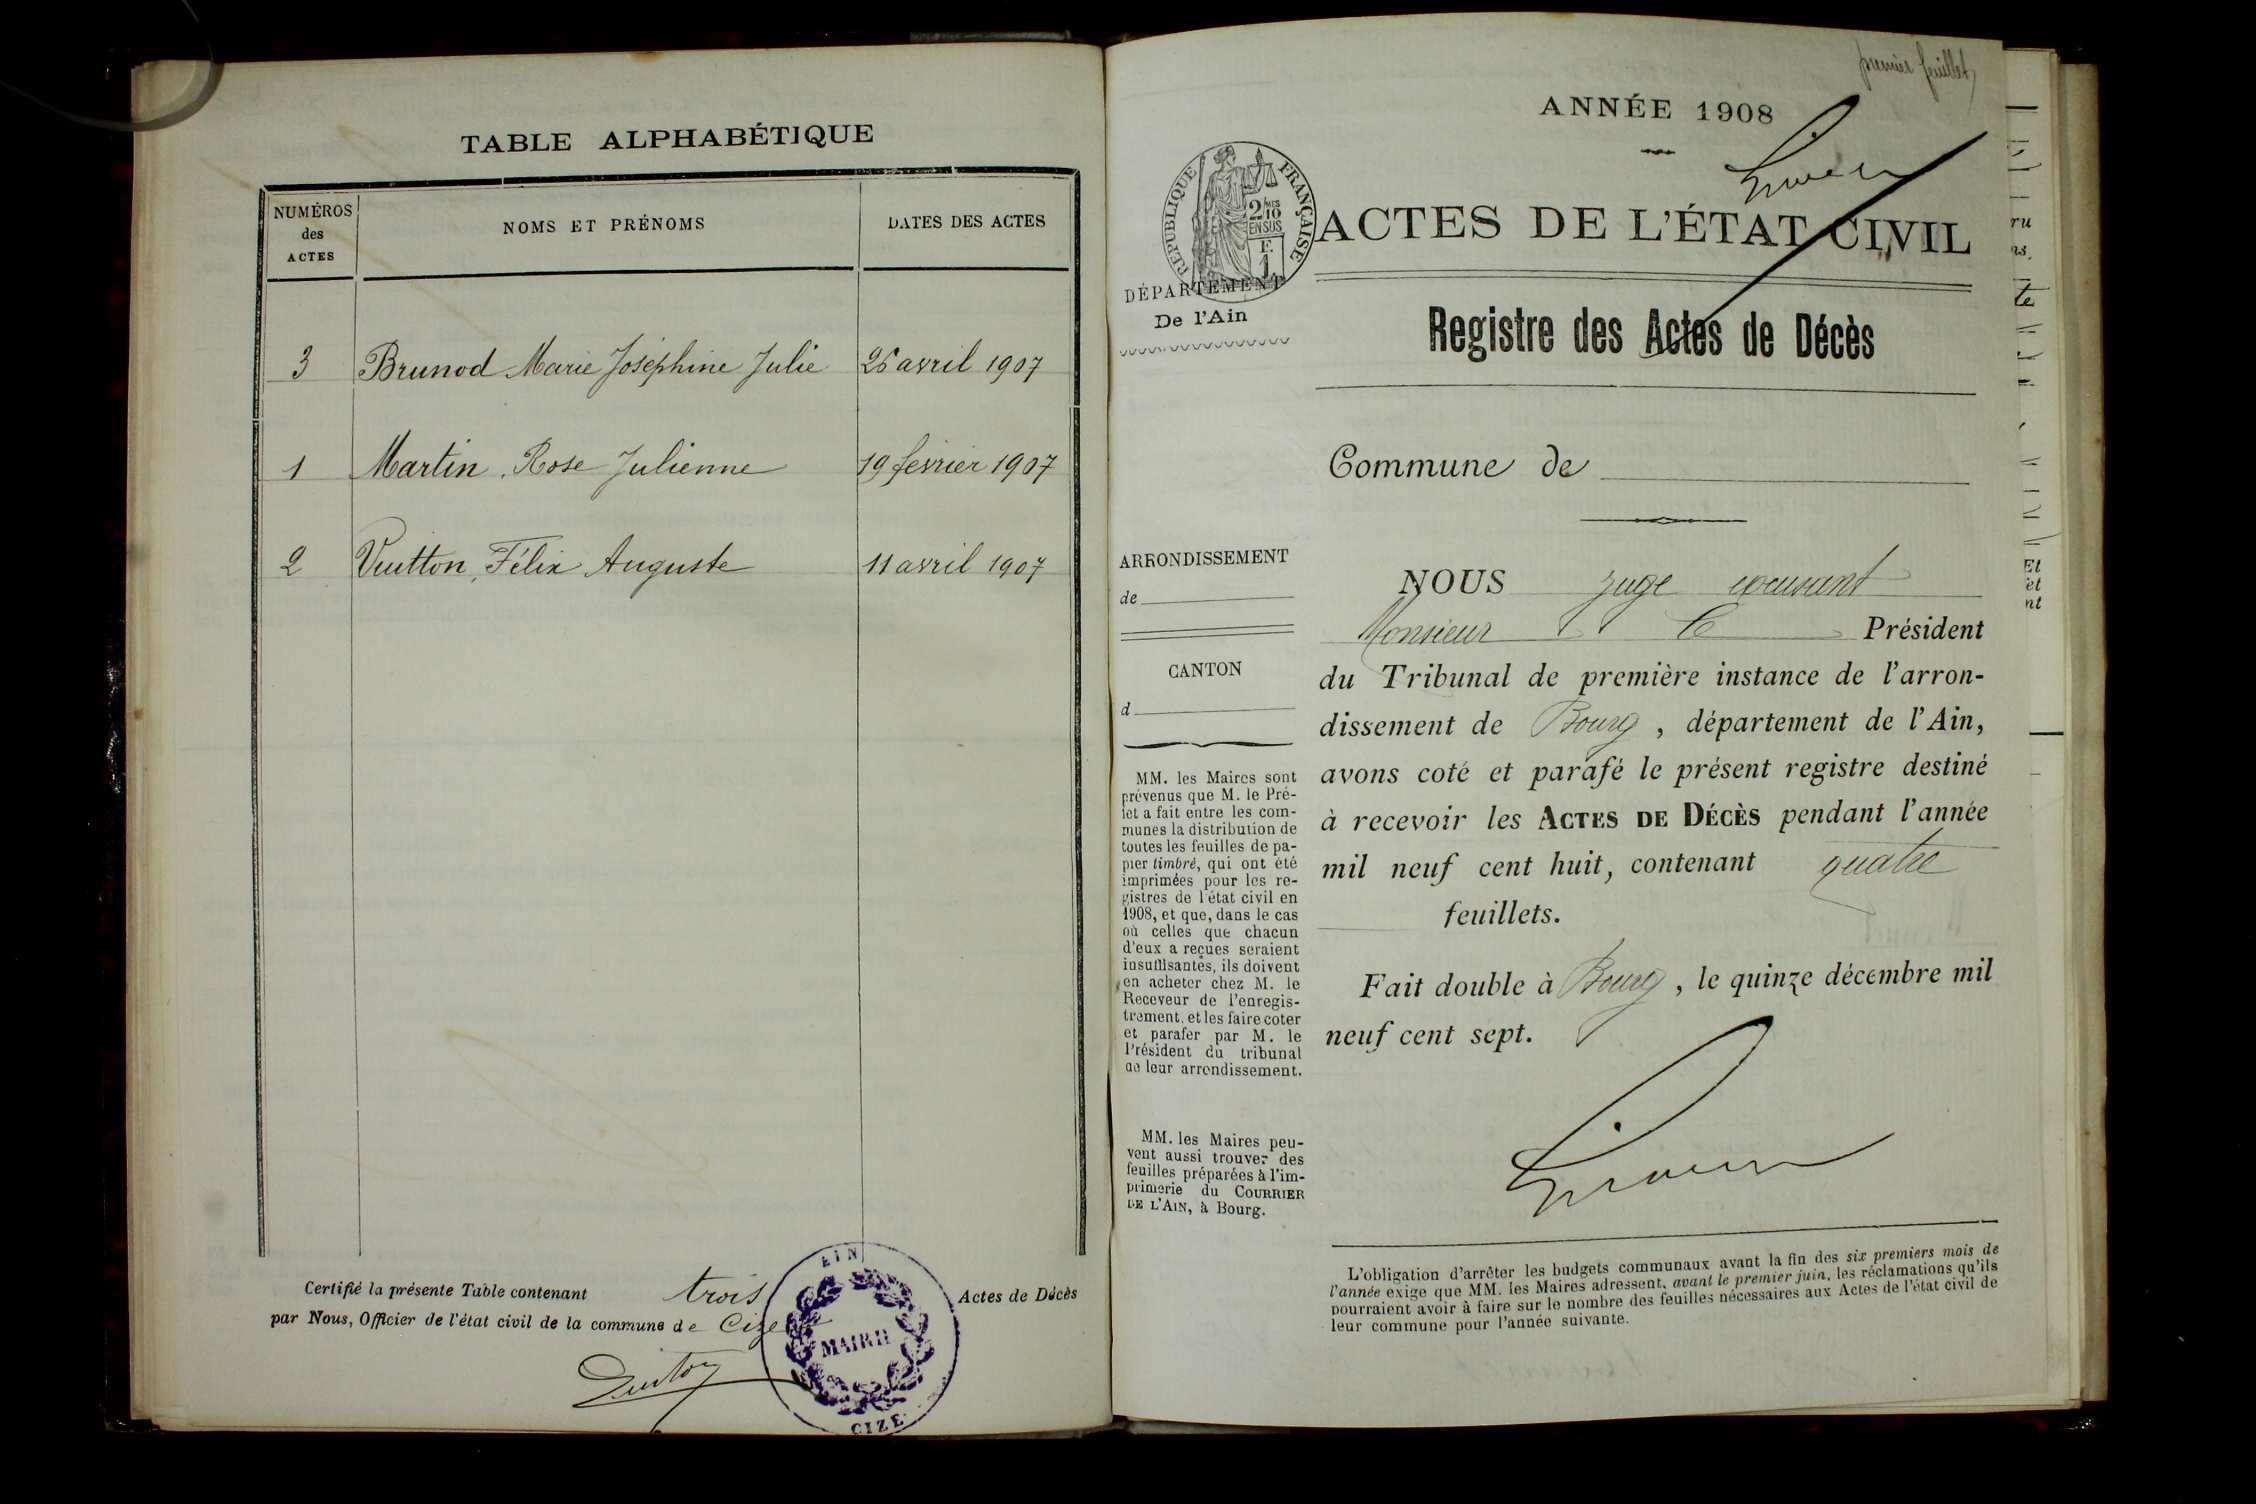 TABLE ALPHABÉTIQUE
NUMÉROS
des
ACTES
NOMS ET PRÉNOMS
DATES DES ACTES
3 Brunod Marie Joséphine Julie 26 avril 1907
1 Martin, Rose Julienne 19 février 1907
2 Vuitton, Félix Auguste 11 avril 1907
Certifié la présente Table contenant trois Actes de Décès
par Nous, Officier de l'état civil de la commune de Cize
AIN
MAIRIE
CIZE
premier feuillet
ANNÉE 1908
RÉPUBLIQUE FRANÇAISE
2/10
EN SUS
F.
1
ACTES DE L'ÉTAT CIVIL
DÉPARTEMENT
De l'Ain
Registre des Actes de Décès
Commune de
ARRONDISSEMENT
de
CANTON
d
MM. les Maires sont
prévenus que M. le Pré-
fet a fait entre les com-
munes la distribution de
toutes les feuilles de pa-
pier timbré, qui ont été
imprimées pour les re-
gistres de l'état civil en
1908, et que, dans le cas
où celles que chacun
d'eux a reçues seraient
insuffisantes, ils doivent
en acheter chez M. le
Receveur de l'enregis-
trement, et les faire coter
et parafer par M. le
Président du tribunal
de leur arrondissement.
MM. les Maires peu-
vent aussi trouver des
feuilles préparées à l'im-
primerie du COURRIER
DE L'AIN, à Bourg.
NOUS juge excusant
Monsieur le Président
du Tribunal de première instance de l'arron-
dissement de Bourg, département de l'Ain,
avons coté et parafé le présent registre destiné
à recevoir les ACTES DE DÉCÈS pendant l'année
mil neuf cent huit, contenant quatre
feuillets.
Fait double à Bourg, le quinze décembre mil
neuf cent sept.
L'obligation d'arrêter les budgets communaux avant la fin des six premiers mois de
l'année exige que MM. les Maires adressent, avant le premier juin, les réclamations qu'ils
pourraient avoir à faire sur le nombre des feuilles nécessaires aux Actes de l'état civil de
leur commune pour l'année suivante.